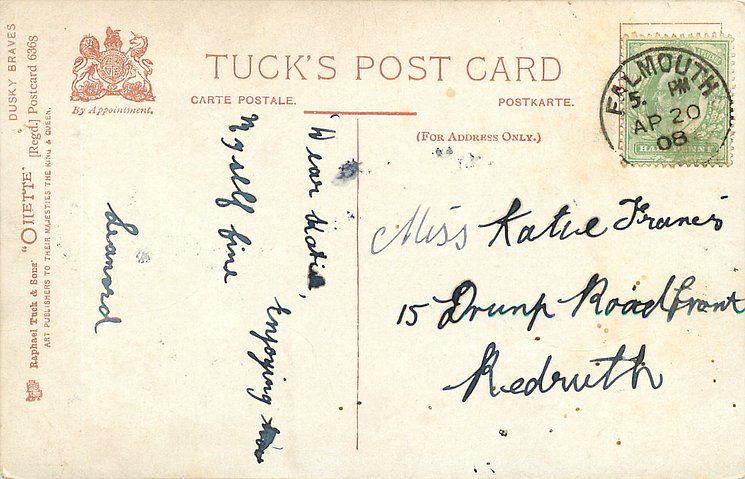 DUSKY BRAVES
[Regd.] Postcard 6368
"OILETTE"
Raphael Tuck & Sons'
ART PUBLISHERS TO THEIR MAJESTIES THE KING & QUEEN.
By Appointment.
TUCK'S POST CARD
CARTE POSTALE.
POSTKARTE.
(FOR ADDRESS ONLY.)
FALMOUTH
5. PM
AP 20
08
HALFPENNY
Dear Katie,
Enjoying
Myself fine
Leanord
Miss Katie Francis
15 Drump Road
Redruth